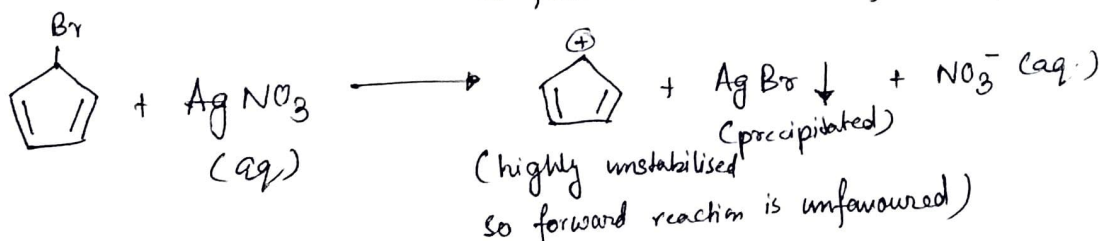 Br
+ AgNO₃ ⟶ ⊕ + AgBr ↓ + NO₃⁻ (aq.)
(aq) (precipitated)
(highly unstabilised
so forward reaction is unfavoured)